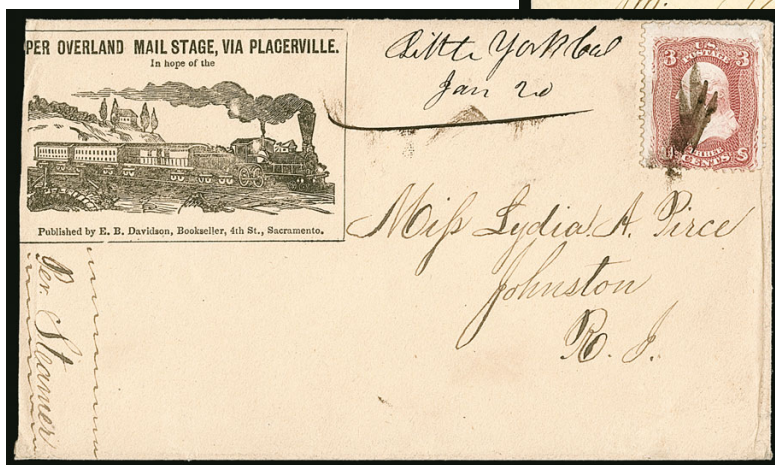 PER OVERLAND MAIL STAGE, VIA PLACERVILLE.
In hope of the
Published by E. B. Davidson, Bookseller, 4th St., Sacramento.
Little York Cal
Jan 20
3 U.S. 3
POSTAGE
THREE
CENTS
Miſs Lydia A. Pirce
Johnston
R. I.
Per. Steamer